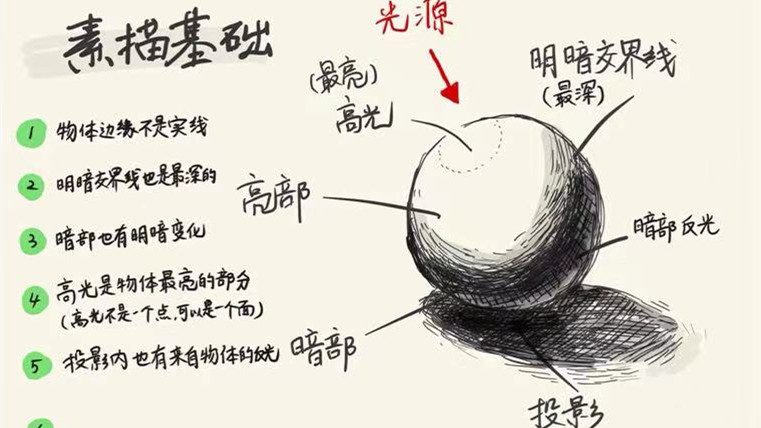 素描基础
光源
(最亮)
高光
明暗交界线
(最深)
1 物体边缘不是实线
2 明暗交界线也是最深的
亮部
3 暗部也有明暗变化
暗部反光
4 高光是物体最亮的部分
(高光不是一个点,可以是一个面)
5 投影内也有来自物体的反光
暗部
投影